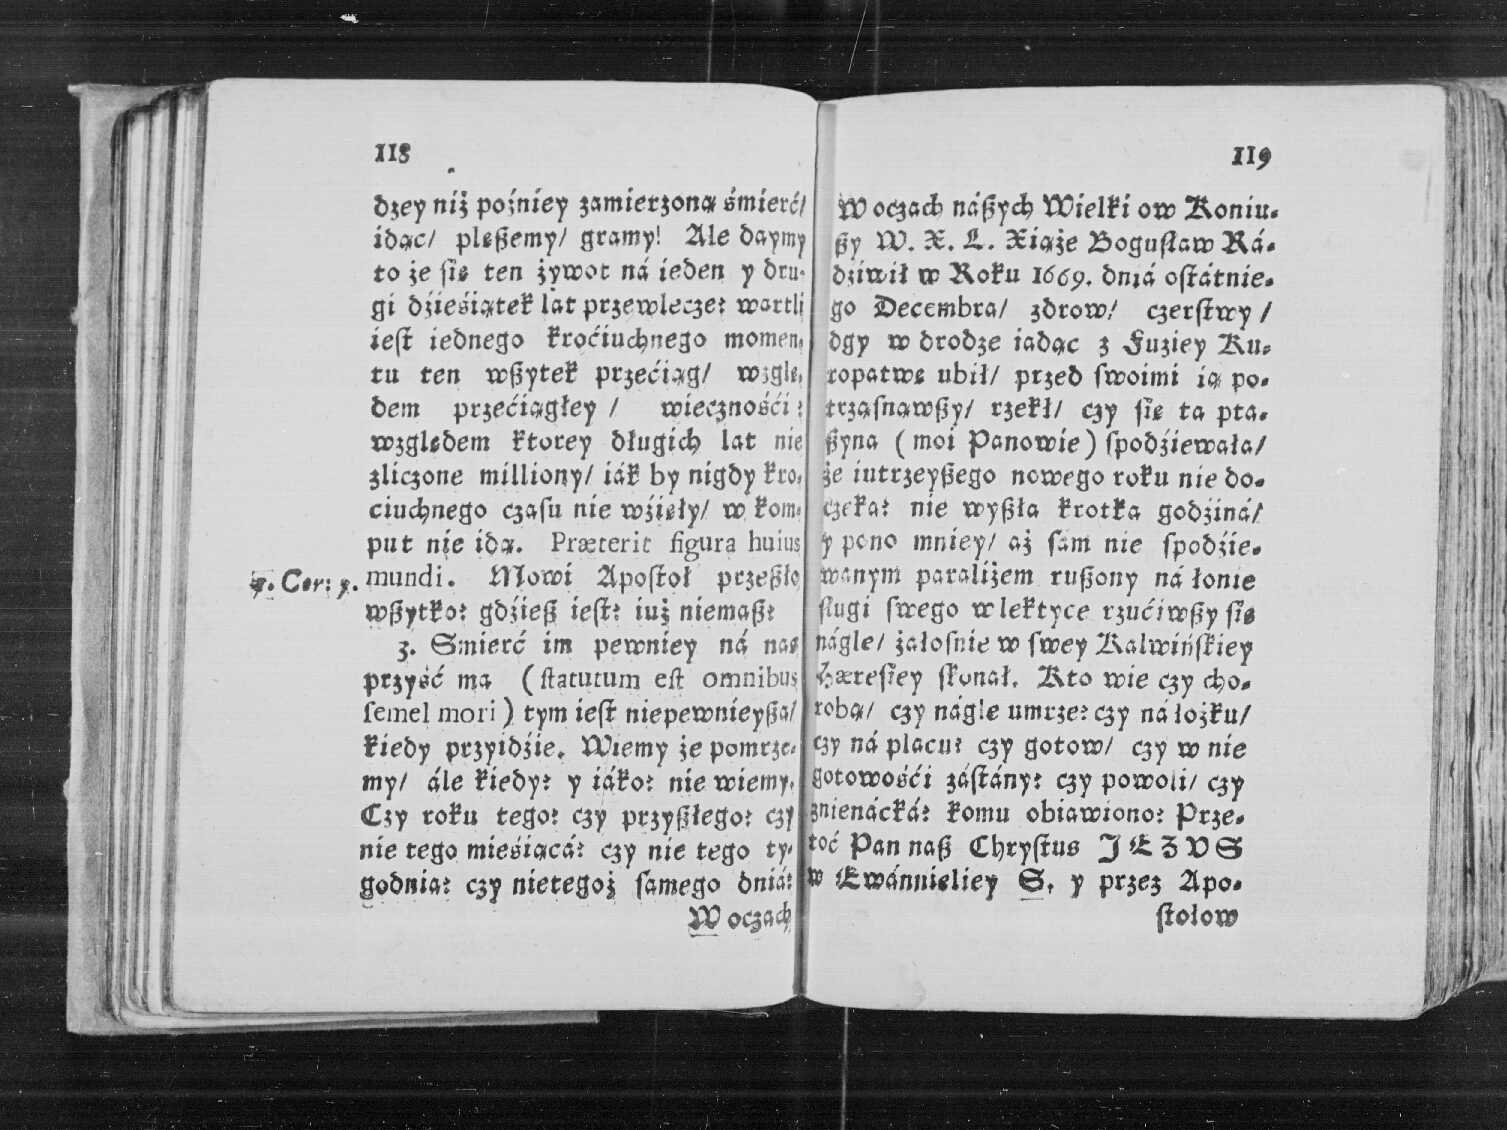 118
dzey niż poźniey zamierzoną śmierć/
idąc/ pleßemy/ gramy! Ale daymy
to że się ten żywot ná ieden y dru-
gi dźieśiątek lat przewlecze? wartli
iest iednego kroćiuchnego momen-
tu ten wßytek przećiąg/ wzglę-
dem przećiągłey / wiecznośći?
względem ktorey długich lat nie
zliczone milliony/ iák by nigdy kro-
ciuchnego czasu nie wźięły/ w kom-
put nie idą. Præterit figura huius
mundi. Mowi Apostoł przeßło
wßytko? gdźieß iest? iuż niemaß?
3. Smierć im pewniey ná nas
przyść ma (statutum est omnibus
semel mori) tym iest niepewnieyßa/
kiedy przyidźie. Wiemy że pomrze-
my/ ále kiedy? y iáko? nie wiemy.
Czy roku tego? czy przyßłego? czy
nie tego mieśiącá? czy nie tego ty-
godnia? czy nietegoż samego dniá?
W oczach
Cor: 7.
119
W oczach náßych Wielki ow Koniu-
ßy W. X. L. Xiąże Bogusław Rá-
dźiwił w Roku 1669. dniá ostátnie-
go Decembra/ zdrow/ czerstwy /
gdy w drodze iadąc z Fuziey Ku-
ropatwę ubił/ przed swoimi ią po-
trząsnąwßy/ rzekł/ czy się ta pta-
ßyna (moi Panowie) spodźiewała/
że iutrzeyßego nowego roku nie do-
czeka? nie wyßła krotka godźiná/
y pono mniey/ aż sam nie spodźie-
wanym paraliżem rußony ná łonie
sługi swego w lektyce rzućiwßy się
nágle/ żałosnie w swey Kalwińskiey
Hæresiey skonał. Kto wie czy cho-
robą/ czy nágle umrze? czy ná łożku/
czy ná placu? czy gotow/ czy w nie
gotowośći zástány? czy powoli/ czy
znienácká? komu obiawiono? Prze-
toć Pan naß Chrystus JEZVS
w Ewánnieliey S. y przez Apo-
stołow